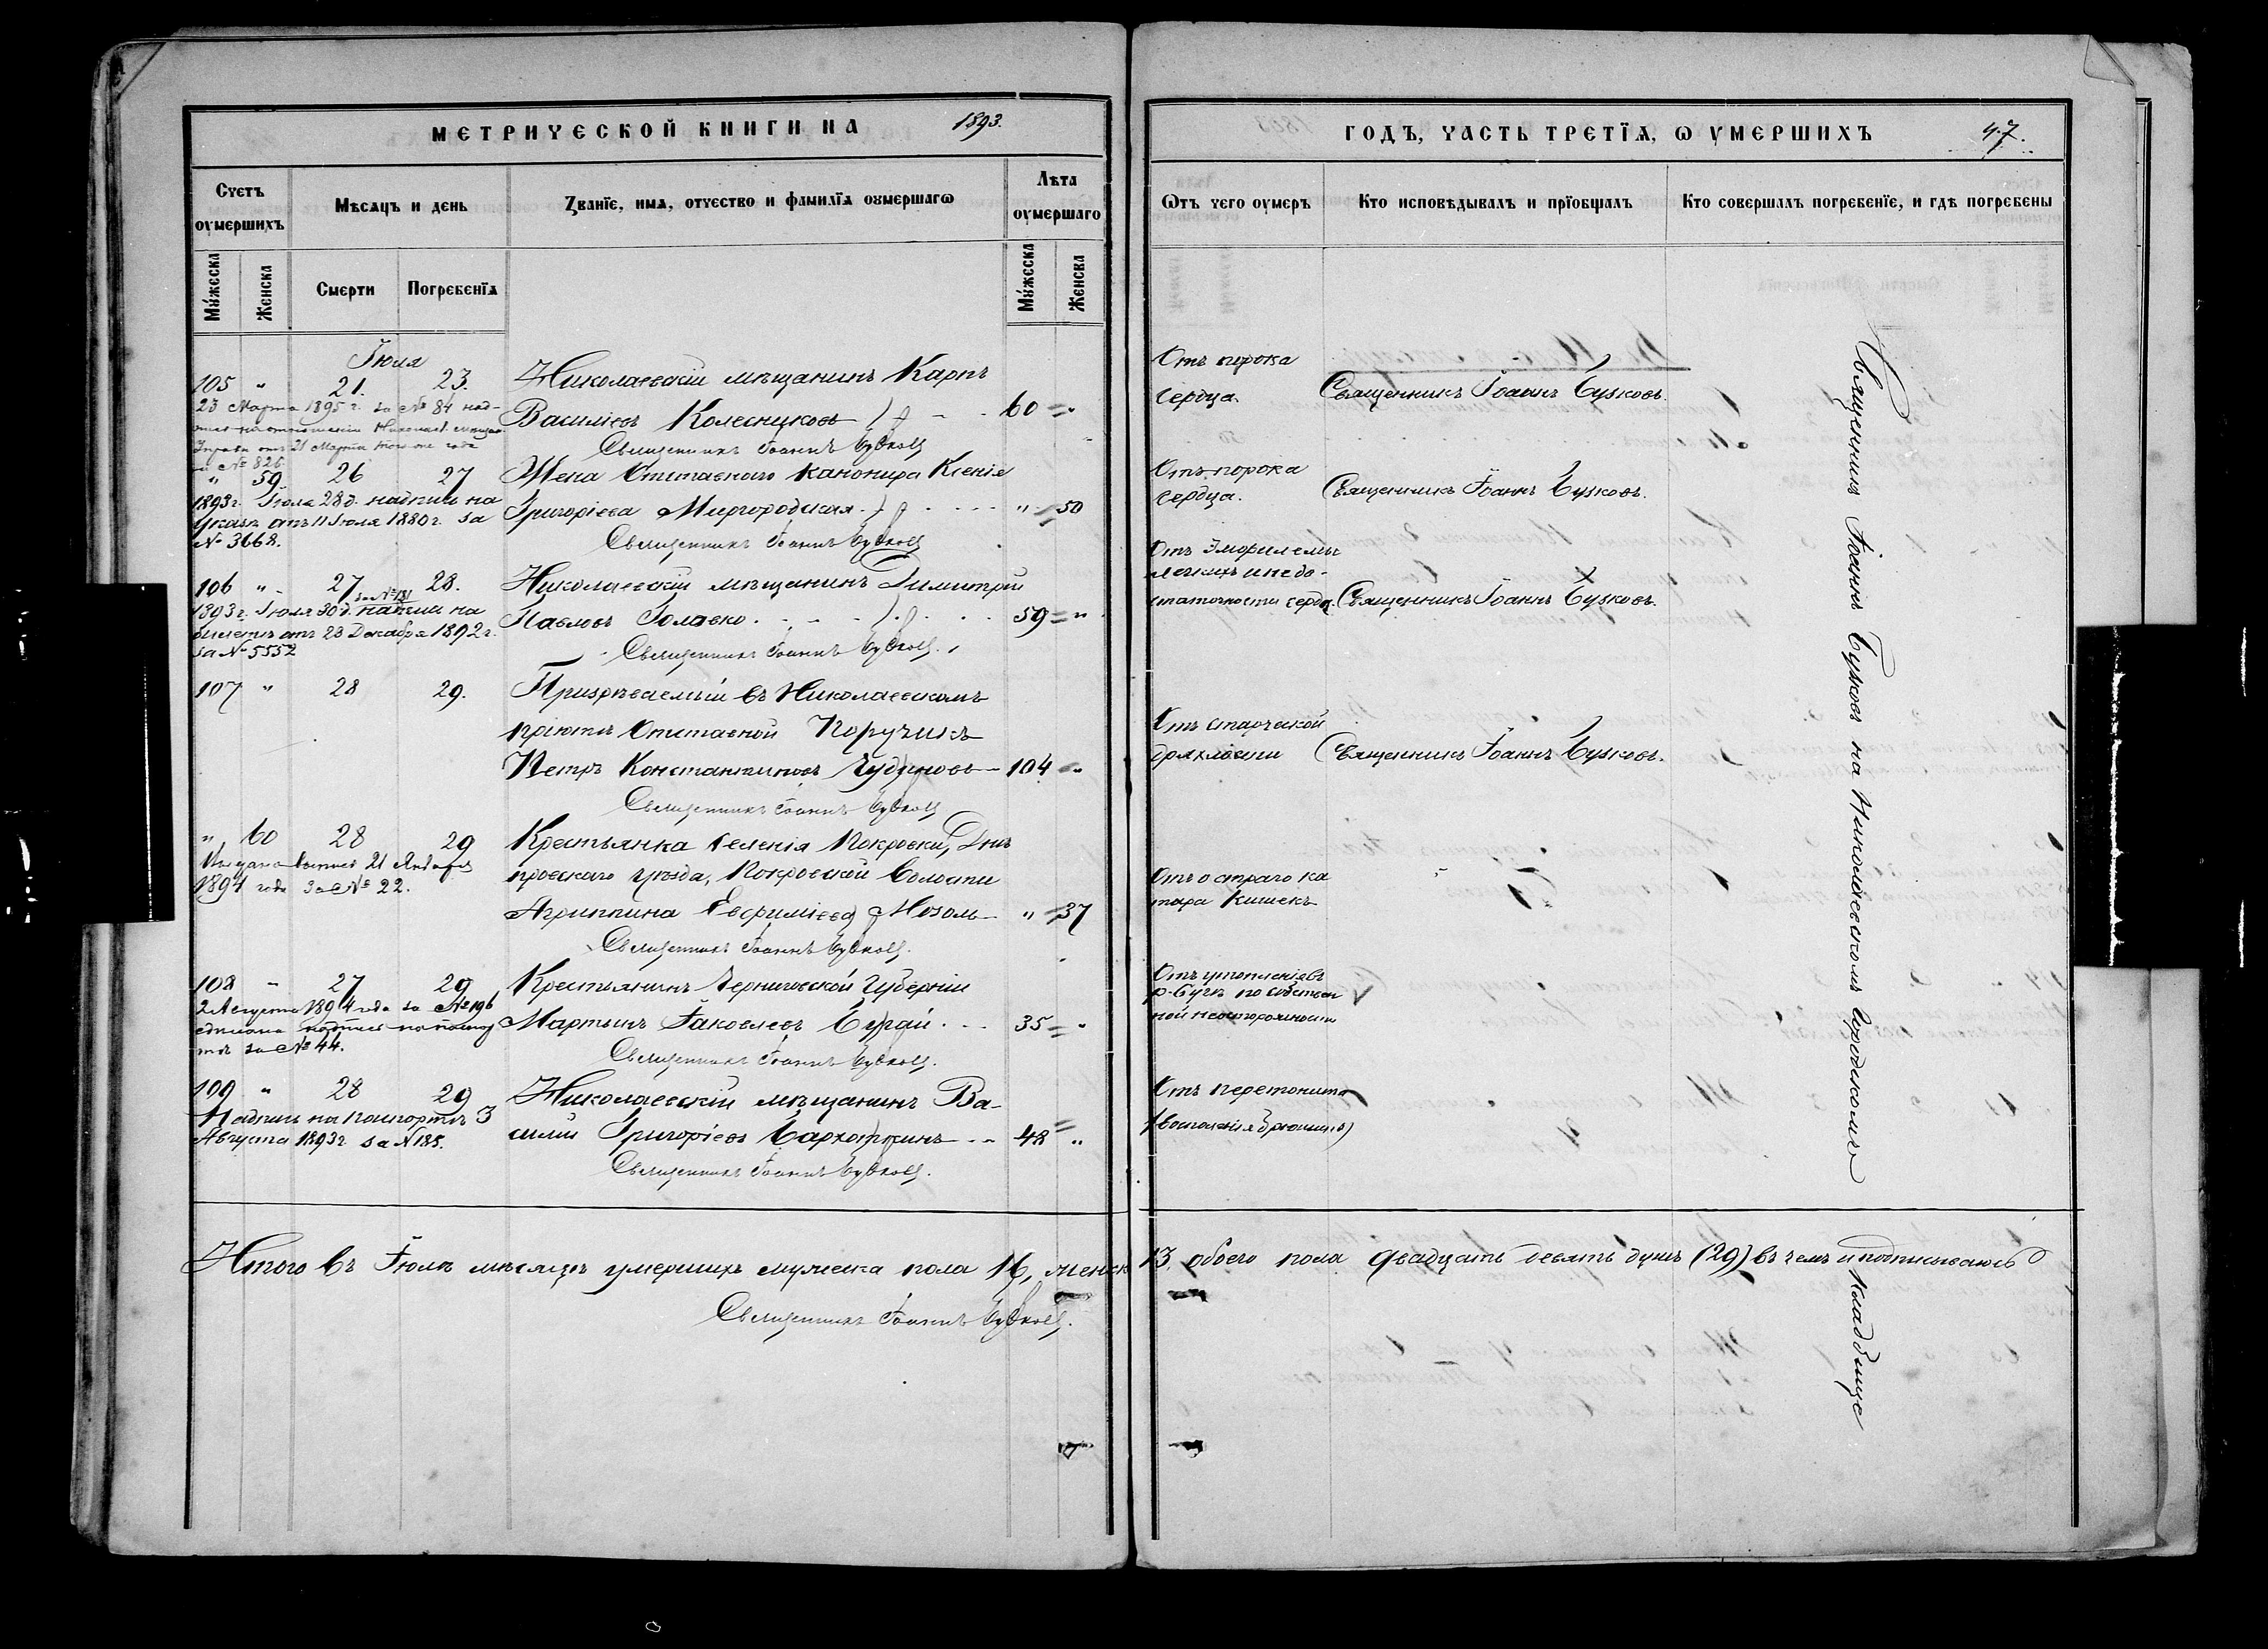 МЕТРИЧЕСКОЙ КНИГИ НА 1893.
Счетъ оумершихъ
Мѣсяцъ и день
Званїе, имя, отчество и фамилїя оумершагѡ
Лѣта оумершаго
Мужеска
Женска
Смерти
Погребенїя
Мужеска
Женска
Іюля
105 " 21. 23. Николаевскій мѣщанинъ Карпъ
23 Марта 1895 г. за № 84 над-
Василіевъ Колесниковъ 60 "
Управы отъ 21 Марта того же года
за № 826
Священникъ Іоаннъ
" 59 26 27 Жена Отставного канонира Ксенія
1893 г. Іюля 28 д. надпись на
Указѣ отъ 11 Іюля 1880 г. за
№ 3668.
Григоріева Миргородская " 50
Священникъ Іоаннъ
106 " 27 28. Николаевскій мѣщанинъ Димитрій
за № 181
1893 г. Іюля 30 д. надпись на
билетѣ отъ 23 Декабря 1892 г.
за № 5552
Павловъ Головко 59 "
Священникъ Іоаннъ
107 " 28 29. Призрѣваемый въ Николаевскомъ
пріютѣ Отставной Поручикъ
Петръ Константиновъ Чудиновъ 104 "
Священникъ Іоаннъ
" 60 28 29 Крестьянка селенія Покровки, Днѣ
Выдана выпись 21 Января
1894 года за № 22.
провскаго уѣзда, Покровской Волости
Агриппина Евфиміева Мозоль " 37
Священникъ Іоаннъ
108 " 27 29 Крестьянинъ Черниговской Губерніи
2 Августа 1894 года за № 196
сдѣлана надпись на
за № 44.
Мартынъ Іаковлевъ 35 "
Священникъ Іоаннъ
109 " 28 29 Николаевскій мѣщанинъ Ва-
Надпись на паспортѣ 3
Августа 1893 г. за № 185.
силій Григоріевъ 48 "
Священникъ Іоаннъ
Итого въ Іюлѣ мѣсяцѣ умершихъ мужеска пола 16, женск
Священникъ Іоаннъ
ГОДЪ, ЧАСТЬ ТРЕТЇЯ, Ѡ УМЕРШИХЪ 47.
Ѿтъ чего оумеръ
Кто исповѣдывалъ и прїобщалъ
Кто совершалъ погребенїе, и гдѣ погребены
Отъ порока
сердца.
Священникъ Іоаннъ
Отъ порока
сердца.
Священникъ Іоаннъ
Отъ Эмфиземы
легкихъ и недо-
статочности сердц.
Священникъ Іоаннъ
Отъ старческой
дряхлости
Священникъ Іоаннъ
Отъ остраго ка
тара Кишекъ
Отъ утопленія въ
р. Бугѣ по собствен
ной неосторожности
Отъ перетонита
(воспаленія брюшины)
Священникъ Іоаннъ на Николаевскомъ Городскомъ Кладбище
13, обоего пола двадцать девять душъ (29) въ чемъ и подписываюсь